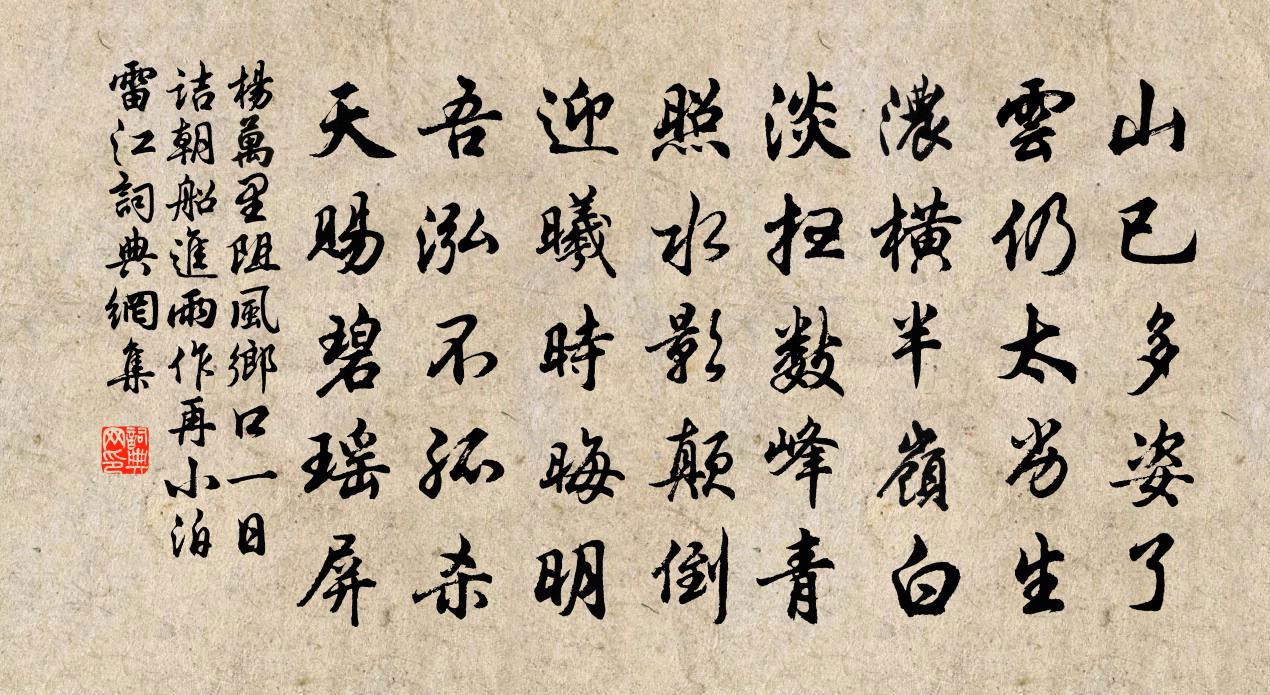 山已多姿了
雲仍太劣生
濃橫半嶺白
淡扫數峰青
照水影顛倒
迎曦時晦明
吾泓不孤杀
天賜碧瑶屏
楊萬里阻風鄉口一日
詰朝船進雨作再小泊
雷江詞典網集
詞典
网印